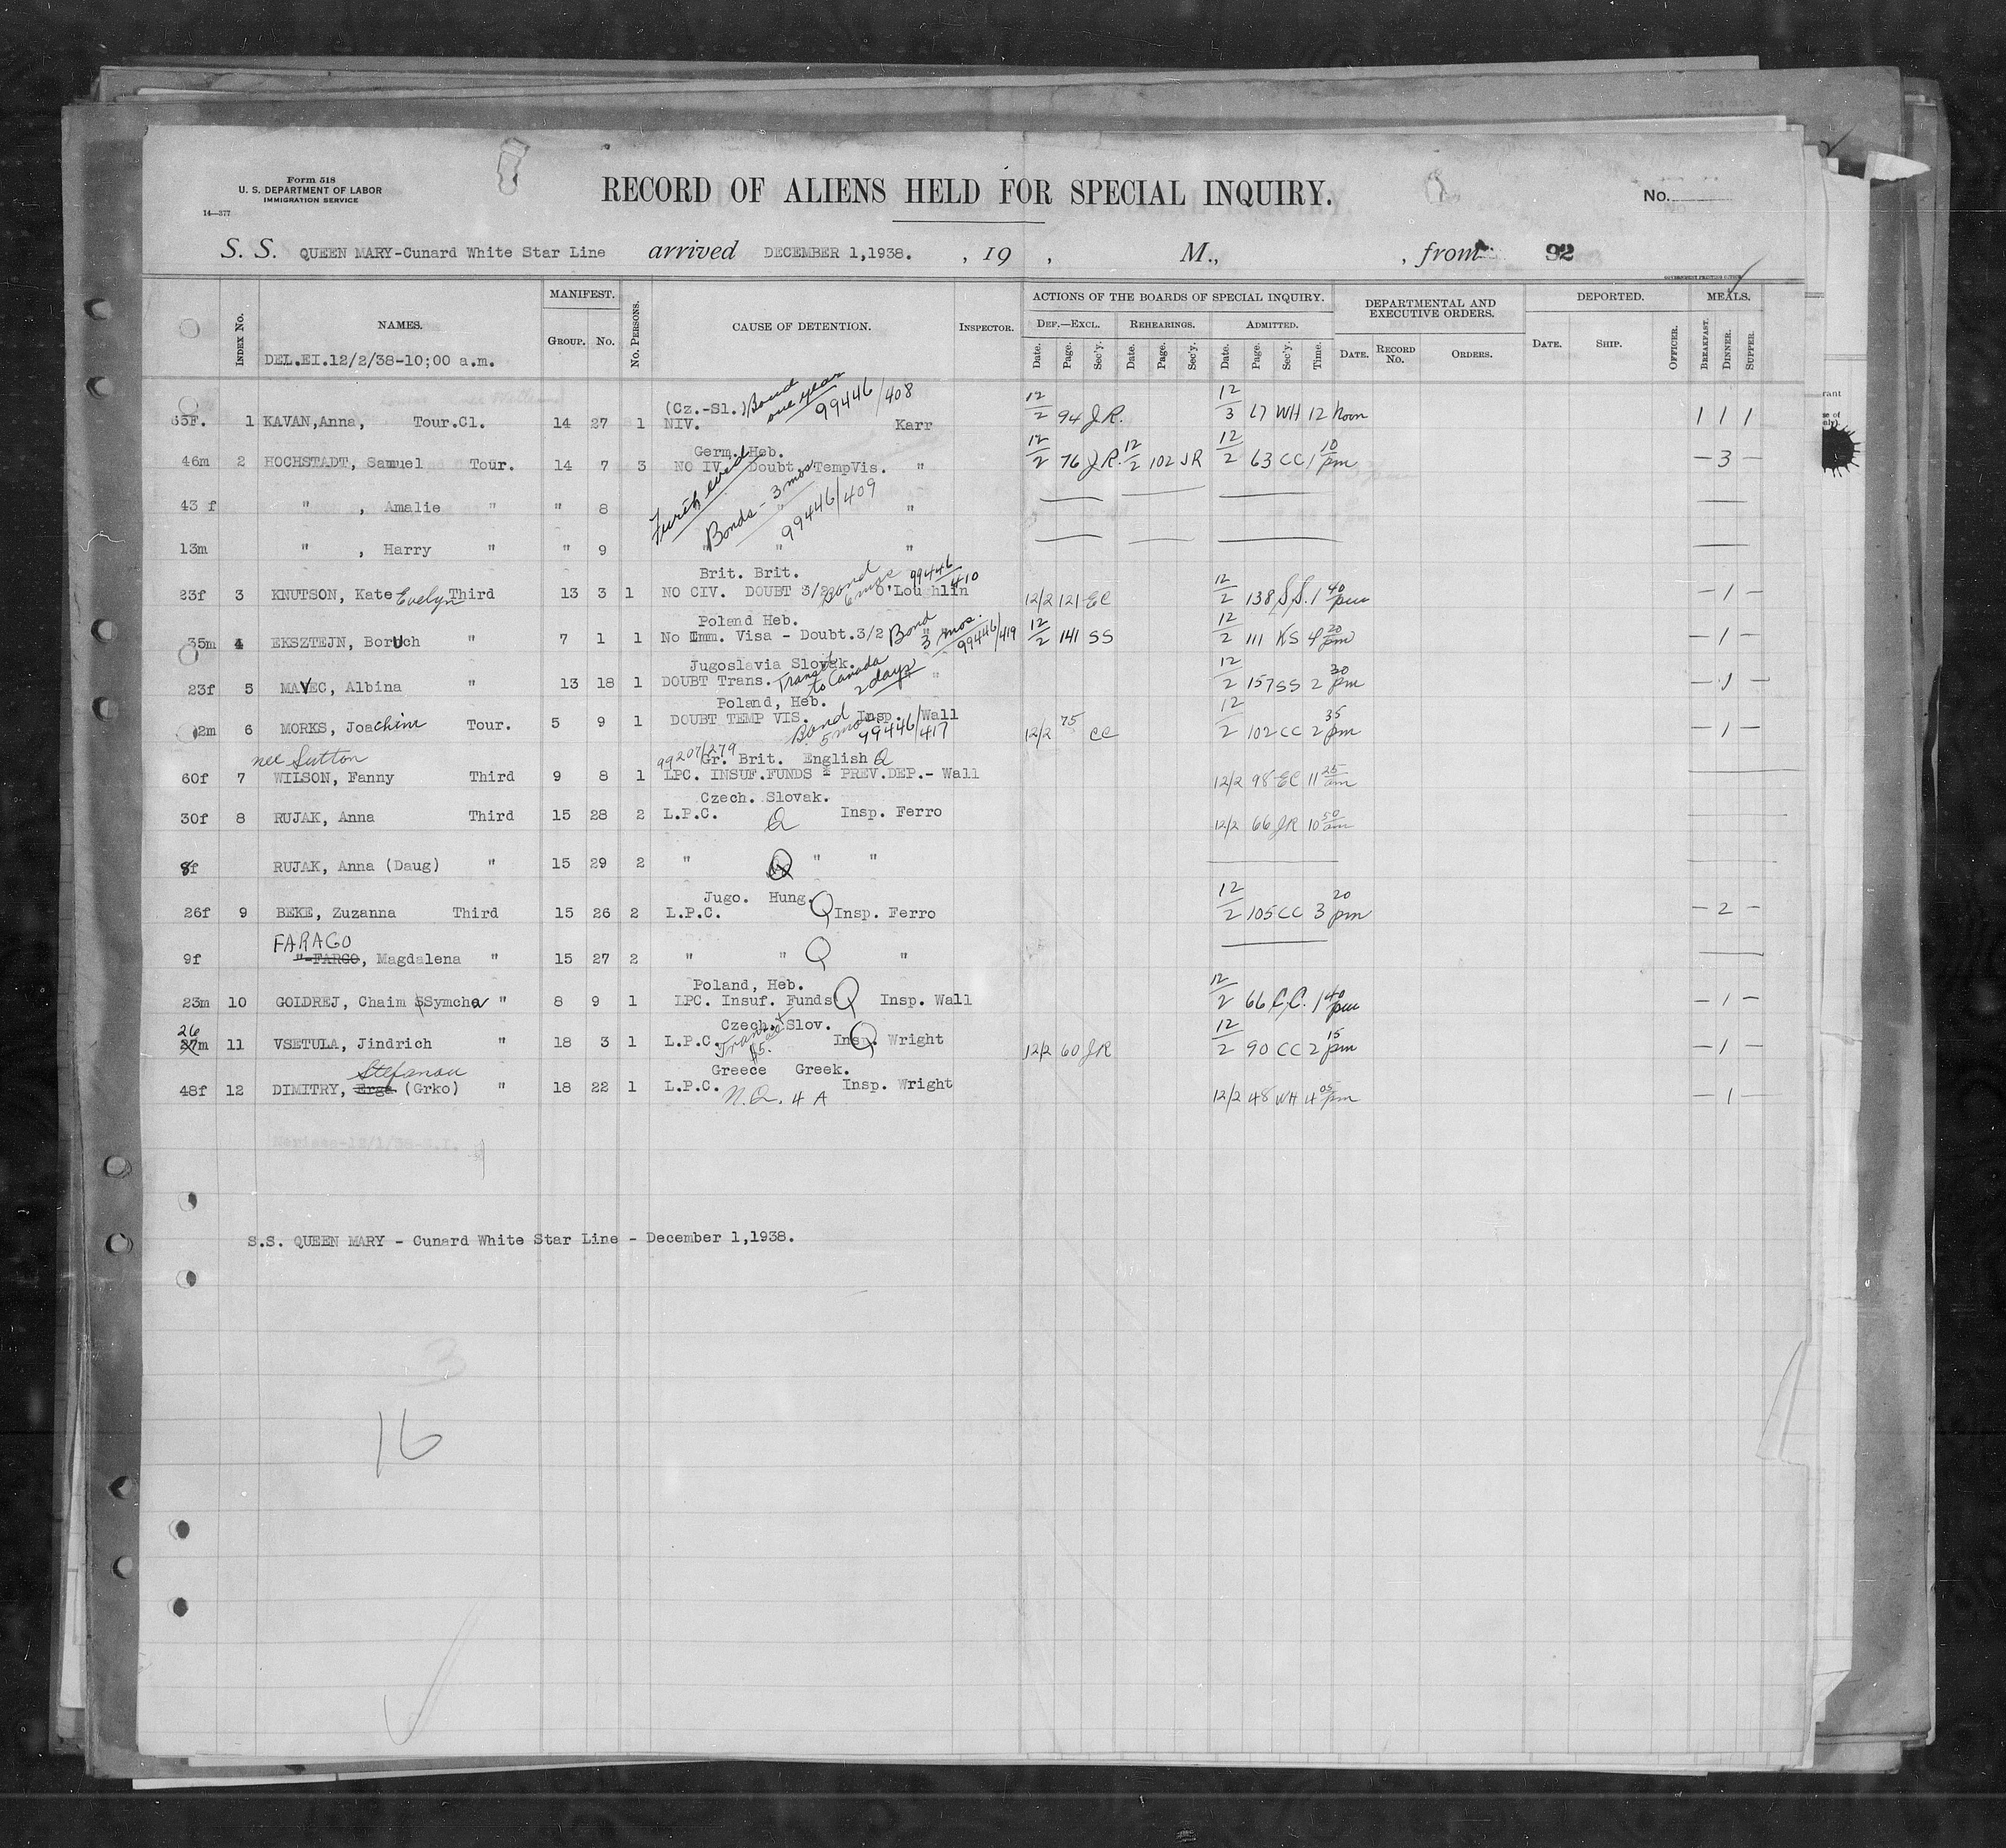 Form 518
U. S. DEPARTMENT OF LABOR
IMMIGRATION SERVICE
14—377
RECORD OF ALIENS HELD FOR SPECIAL INQUIRY.
No.
S. S. QUEEN MARY-Cunard White Star Line arrived DECEMBER 1,1938. , 19 , M., , from 92
GOVERNMENT PRINTING OFFICE
INDEX No. NAMES. MANIFEST. GROUP. No. No. PERSONS. CAUSE OF DETENTION. INSPECTOR. ACTIONS OF THE BOARDS OF SPECIAL INQUIRY. DEPARTMENTAL AND EXECUTIVE ORDERS. DEPORTED. MEALS.
DEF.—EXCL. REHEARINGS. ADMITTED.
Date. Page. Sec'y. Date. Page. Sec'y. Date. Page. Sec'y. Time. DATE. RECORD No. ORDERS. DATE. SHIP. OFFICER. BREAKFAST. DINNER. SUPPER.
DEL.EI.12/2/38-10;00 a.m.
(Cz.-Sl.) Bond one year 99446/408
1 KAVAN,Anna, Tour.Cl. 14 27 1 NIV. Karr 12/2 94 J.R. 12/3 67 WH 12 noon 1 1 1
Germ. Heb.
46m 2 HOCHSTADT, Samuel Tour. 14 7 3 NO IV. Doubt.TempVis. " 12/2 76 J.R. 12/2 102 JR 12/2 63 CC 1 10 pm — 3 —
Bonds - 3 mos 99446/409
43 f " , Amalie " " 8 "
13m " , Harry " " 9 " " "
Brit. Brit. Bond 6 mos 99446/410
23f 3 KNUTSON, Kate Evelyn Third 13 3 1 NO CIV. DOUBT 3/2 O'Loughlin 12/2 121 EC 12/2 138 S.S. 1 40 pm — 1 —
Poland Heb.
35m 4 EKSZTEJN, BorUch " 7 1 1 No Imm. Visa - Doubt.3/2 Bond 3 mos. 99446/419 12/2 141 SS 12/2 111 KS 4 20 pm — 1 —
Jugoslavia Slovak.
23f 5 MAVEC, Albina " 13 18 1 DOUBT Trans. Transit to Canada 2 days " 12/2 157 SS 2 30 pm — 1 —
Poland, Heb.
2m 6 MORKS, Joachim Tour. 5 9 1 DOUBT TEMP VIS. Insp. Wall Bond 5 mos 99446/417 12/2 75 CC 12/2 102 CC 2 35 pm — 1 —
nee Sutton 99207/279 Gr. Brit. English Q
60f 7 WILSON, Fanny Third 9 8 1 LPC. INSUF.FUNDS - PREV.DEP.- Wall 12/2 98 EC 11 25 am
Czech. Slovak.
30f 8 RUJAK, Anna Third 15 28 2 L.P.C. Q Insp. Ferro 12/2 66 JR 10 50 am
8f RUJAK, Anna (Daug) " 15 29 2 " Q " "
Jugo. Hung.
26f 9 BEKE, Zuzanna Third 15 26 2 L.P.C. Q Insp. Ferro 12/2 105 CC 3 20 pm — 2 —
FARAGO
9f "-FARGO, Magdalena " 15 27 2 " " Q "
Poland, Heb.
23m 10 GOLDREJ, Chaim Symcha " 8 9 1 LPC. Insuf. Funds Q Insp. Wall 12/2 66 C.C. 1 40 pm — 1 —
Czech. Slov.
26
27m 11 VSETULA, Jindrich " 18 3 1 L.P.C. Insp. Q Wright 12/2 60 JR 12/2 90 CC 2 15 pm — 1 —
Stefanou Greece Greek.
48f 12 DIMITRY, Erga (Grko) " 18 22 1 L.P.C. Insp. Wright N.Q. 4 A 12/2 48 WH 4 05 pm — 1 —
S.S. QUEEN MARY - Cunard White Star Line - December 1,1938.
3
16